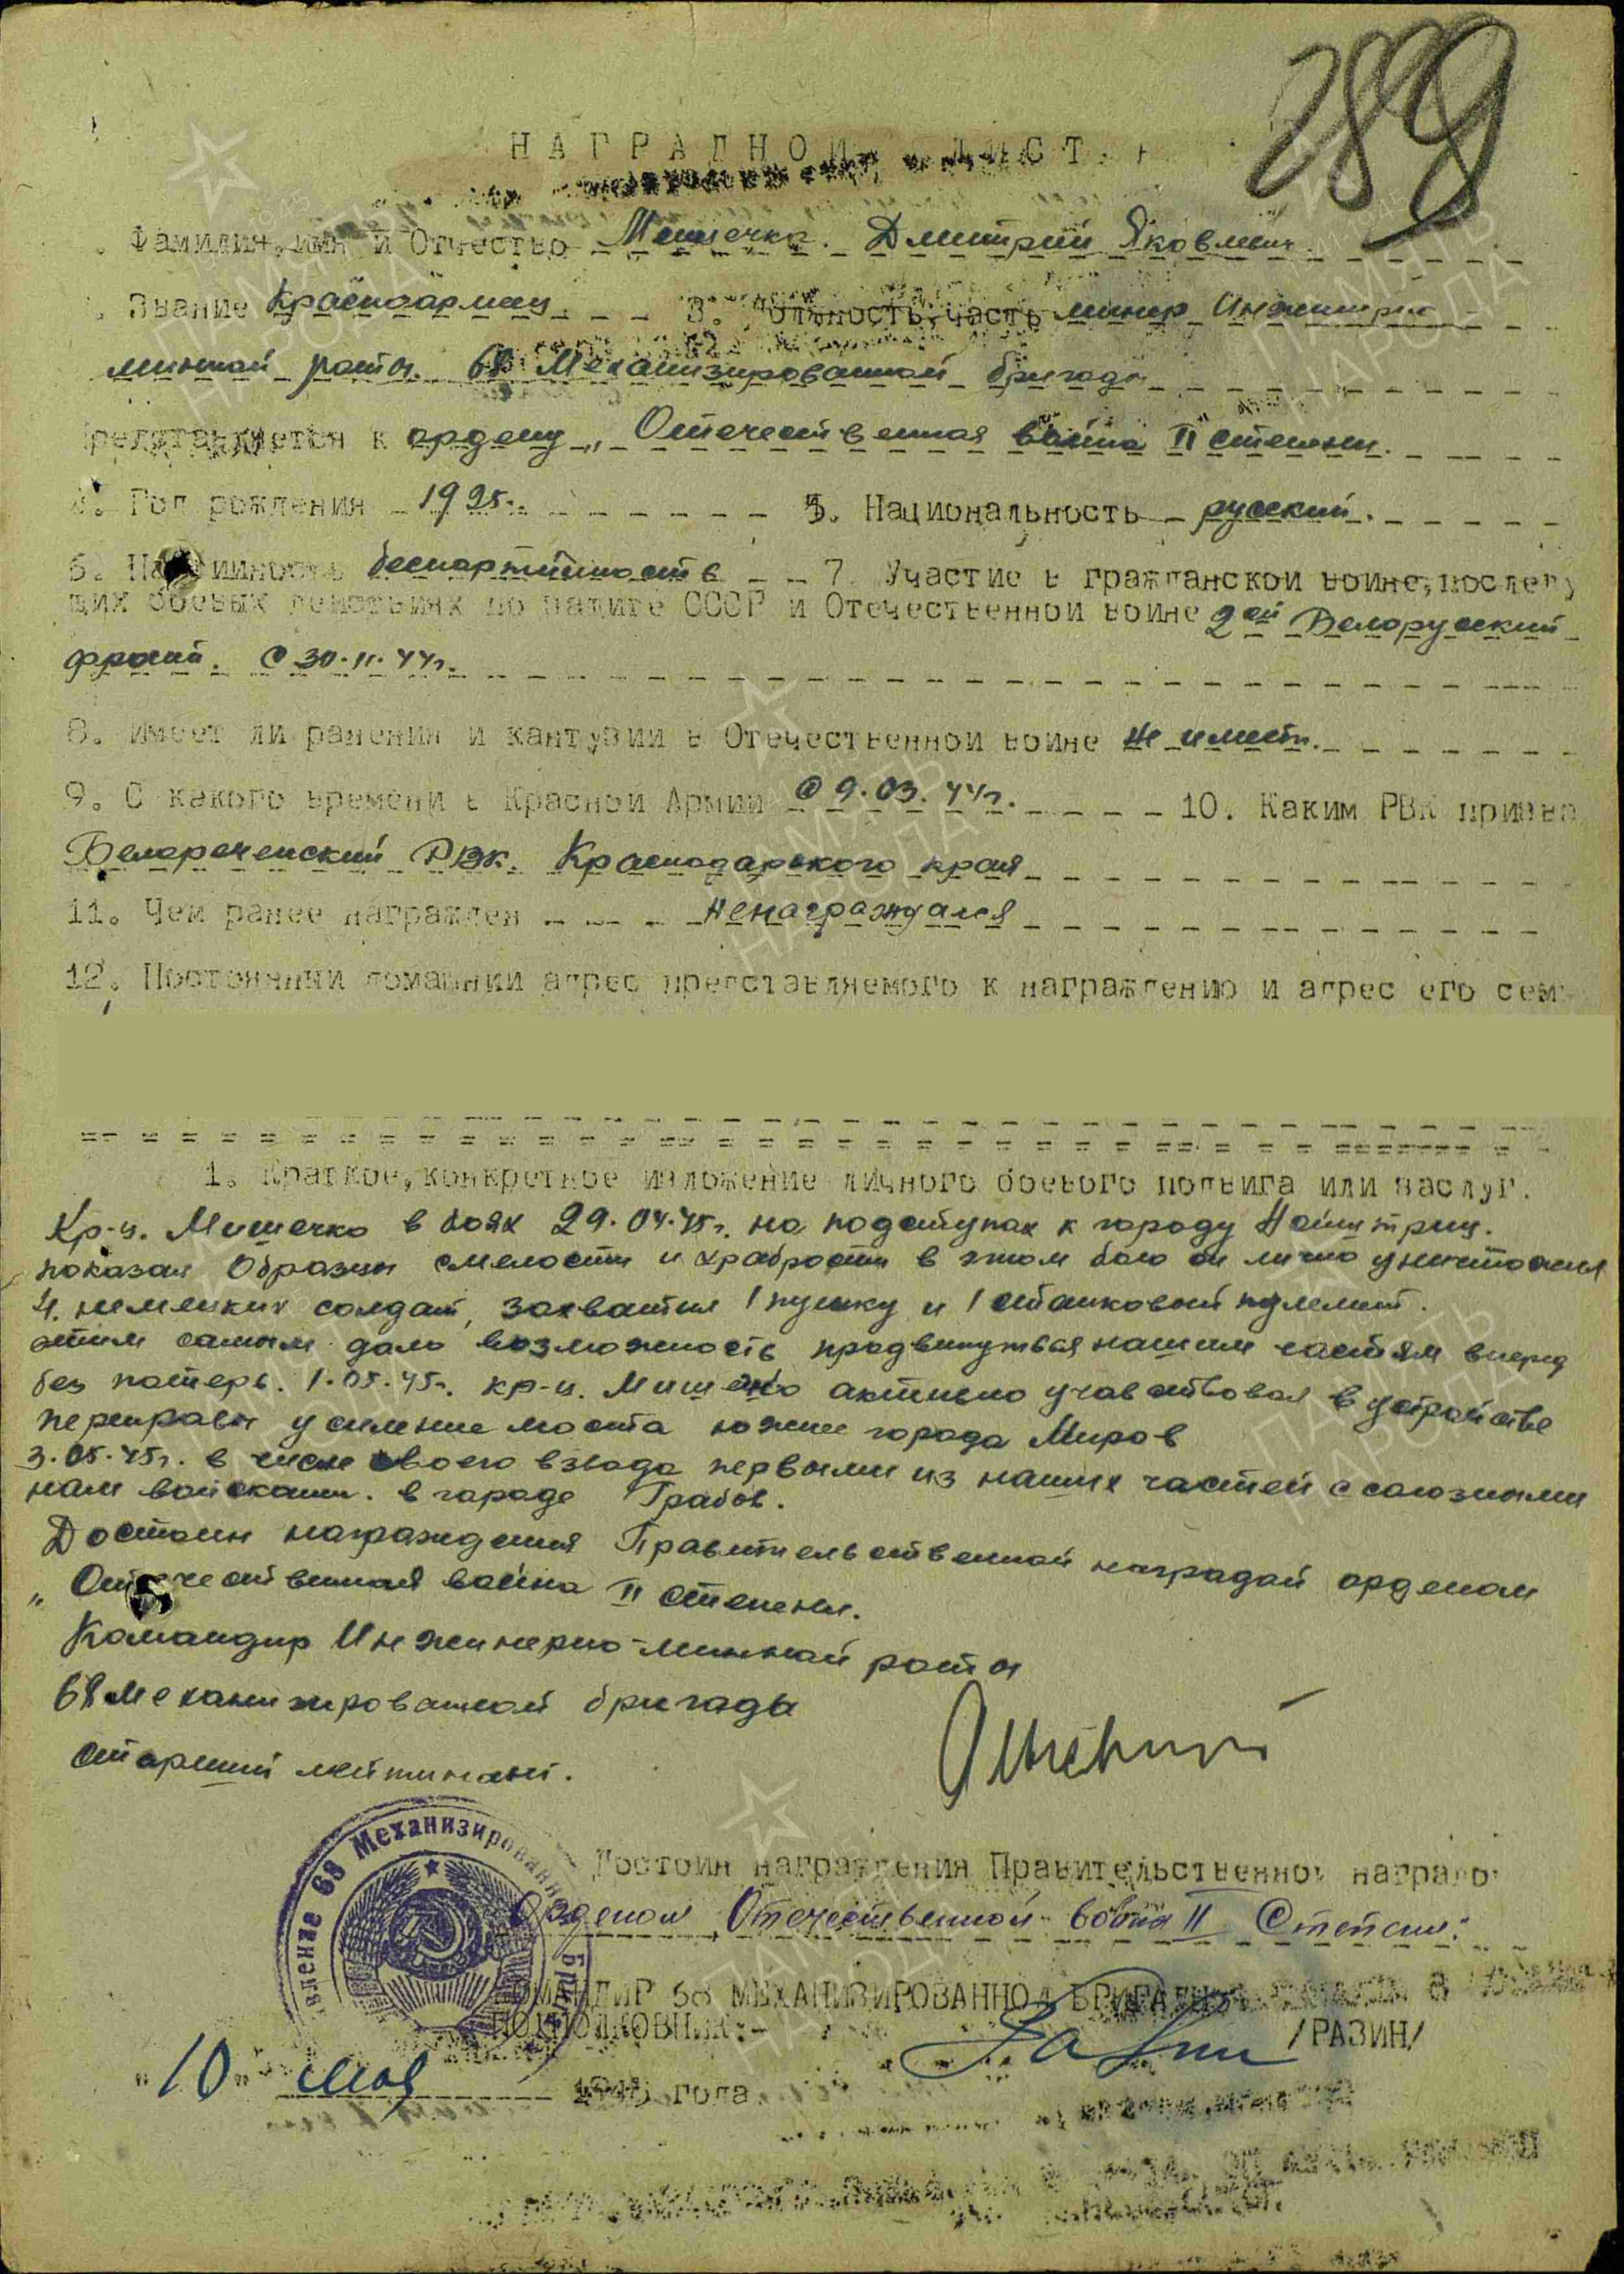 289
НАГРАДНОЙ ЛИСТ
Фамилия, имя и Отчество Мишечко Дмитрий Яковлевич.
Звание Красноармеец 3. Должность, часть минер Инженерно
минной роты. 68 Механизированной бригады
Представляется к ордену „Отечественная война II степени.
4. Год рождения 1925г. 5. Национальность русский.
6. Партийность беспартийность 7. Участие в гражданской войне, послед
щих боевых действиях по защите СССР и Отечественной войне 2ой Белоруский
фронт. С 30.11.44г.
8. имеет ли ранения и кантузии в Отечественной войне не имеет.
9. С какого времени в Красной Армии С 9.03.44г. 10. Каким РВК призва
Белореченский РВК. Краснодарского края
11. Чем ранее награжден ненаграждался
12. Постоянный домашний адрес представляемого к награждению и адрес его сем
1. Краткое, конкретное изложение личного боевого подвига или заслуг.
Кр-ц. Мишечко в боях 29.04.45г. на подступах к городу
показал Образцы смелости и храбрости в этом бою он лично уничтожил
4. немецких солдат, захватил 1 пушку и 1 станковый пулемет.
этим самым дало возможность продвинуться нашим частям вперед
без потерь. 1.05.45г. кр-ц. Мишечко активно учавствовал в устройстве
переправы усиление моста южнее города Миров
3.05.45г. в числе своего взвода первыми из наших частей с союзными
нам войсками. в городе Грабов.
Достоин награждения Правительственной наградой орденом
„Отечественная война II степени.
Командир Инженерно-минной роты
68 Механизированной бригады
старший лейтинант.
Достоин награждения Правительственной наградо
Орденом Отечественной война II Степени.
КОМАНДИР 68 МЕХАНИЗИРОВАННОЙ БРИГАДЫ
ПОДПОЛКОВНИК:- Разин /РАЗИН/
"10" мая 1945 года
вление 68 Механизированной Бриг
ПАМЯТЬ НАРОДА